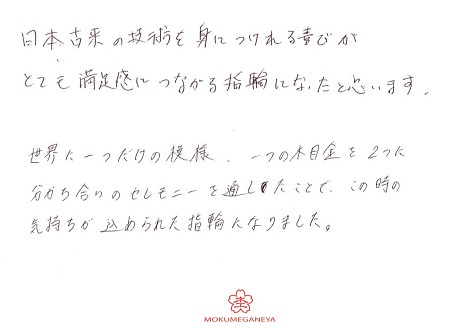 日本古来の技術を身につけれる喜びが
とても満足感につながる指輪になったと思います。
世界に一つだけの模様、一つの木目金を2つに
分かち合いのセレモニーを通したことで、この時の
気持ちが込められた指輪になりました。
MOKUMEGANEYA